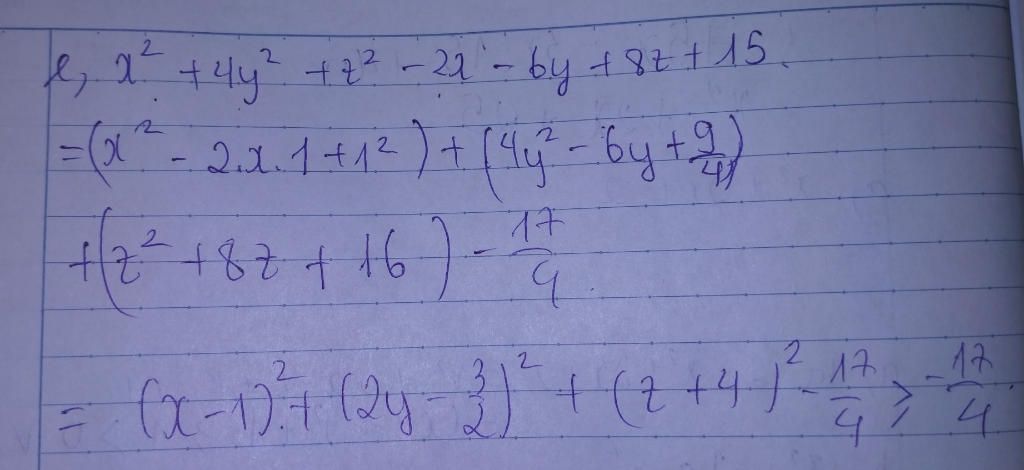 e, x² + 4y² + z² - 2x - 6y + 8z + 15
= (x² - 2.x.1 + 1²) + (4y² - 6y + 9/4)
+ (z² + 8z + 16) - 17/4
= (x - 1)² + (2y - 3/2)² + (z + 4)² - 17/4 ≥ -17/4